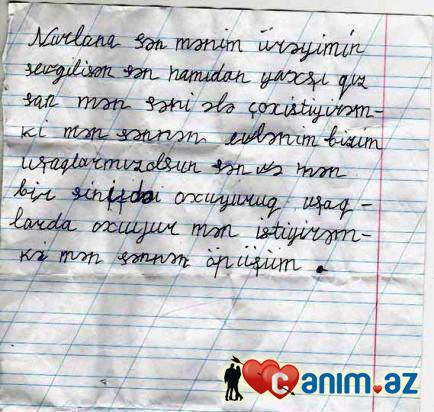 Nurlana sən mənim ürəyimin
sevgilisən sən hamıdan yaxşı qız
san mən səni elə çox istiyirəm-
ki mən sənnən evlənim bizim
uşaqlarımız olsun sən və mən
bir sinifdə oxuyuruq uşaq-
larda oxuyur mən istiyirəm-
ki mən sənnən öpüşüm.
Canım.az